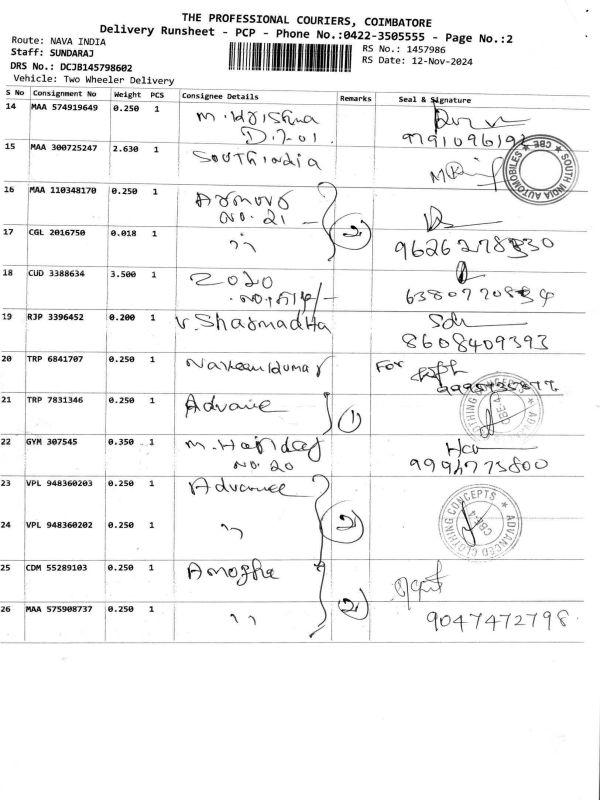 THE PROFESSIONAL COURIERS, COIMBATORE
Delivery Runsheet - PCP - Phone No.:0422-3505555 - Page No.:2
Route: NAVA INDIA
RS No.: 1457986
Staff: SUNDARAJ
RS Date: 12-Nov-2024
DRS No.: DCJB145798602
Vehicle: Two Wheeler Delivery
S No Consignment No Weight PCS Consignee Details Remarks Seal & Signature
14 MAA 574919649 0.250 1 M. Krishna
D.7.01.
15 MAA 300725247 2.630 1 South india
SOUTH INDIA AUTOMOBILES ★ CBE ★
16 MAA 110348170 0.250 1
NO. 21 2
17 CGL 2016750 0.018 1 " 9626278830
18 CUD 3388634 3.500 1 2020
6380770834
19 RJP 3396452 0.200 1 V. Sharmadha
8608409393
20 TRP 6841707 0.250 1 Naveen kumar For
21 TRP 7831346 0.250 1 Advance 1
22 GYM 307545 0.350 1 M. Haridas
NO. 20 9994773800
23 VPL 948360203 0.250 1 Advance
ADVANCED CLOTHING CONCEPTS ★ CBE-4
24 VPL 948360202 0.250 1 " 2
25 CDM 55289103 0.250 1 Amogha
26 MAA 575908737 0.250 1 " 2 9047472798